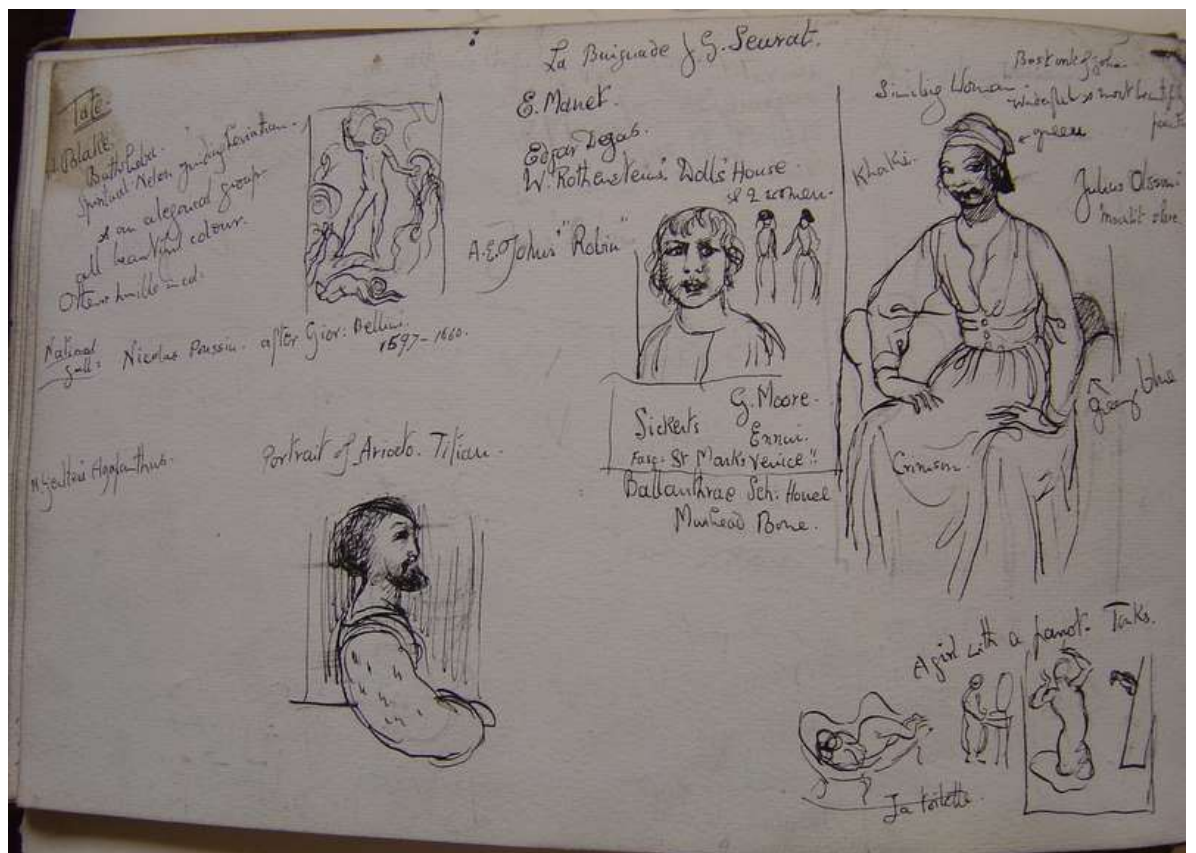 Tate.
Blake.
Bathsheba.
Spiritual Nelson guiding Leviathan.
& an alegorical group
all beautiful colour.
Others smille in col:
National
gall:
Nicolas Poussin. after Giov: Bellini.
1597–1660.
Agapanthus.
Portrait of Ariosto. Titian.
La Baignade J G. Seurat.
E. Manet.
Edgar Degas.
W. Rothenstein's Doll's House
& 2 women.
A.E. John's "Robin"
G. Moore.
Sickerts Ennui.
Fasc: St Marks Venice !!
Ballanthrae Sch: House
Muihead Bone.
Smiling Woman
Best work of John.
Wonderful & most beautifully
painted
green
Khaki.
Julius Olssen's
Crimson.
greeny blue
A girl with a parrot. Tonks.
La toilette.